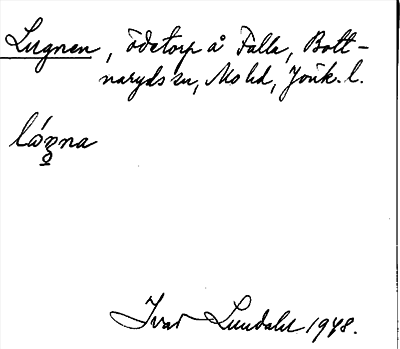 Lugnen, ödetorp å Fälle, Bott-
naryds sn, Mo hd, Jönk. l.
Ivar Lundahl 1948.